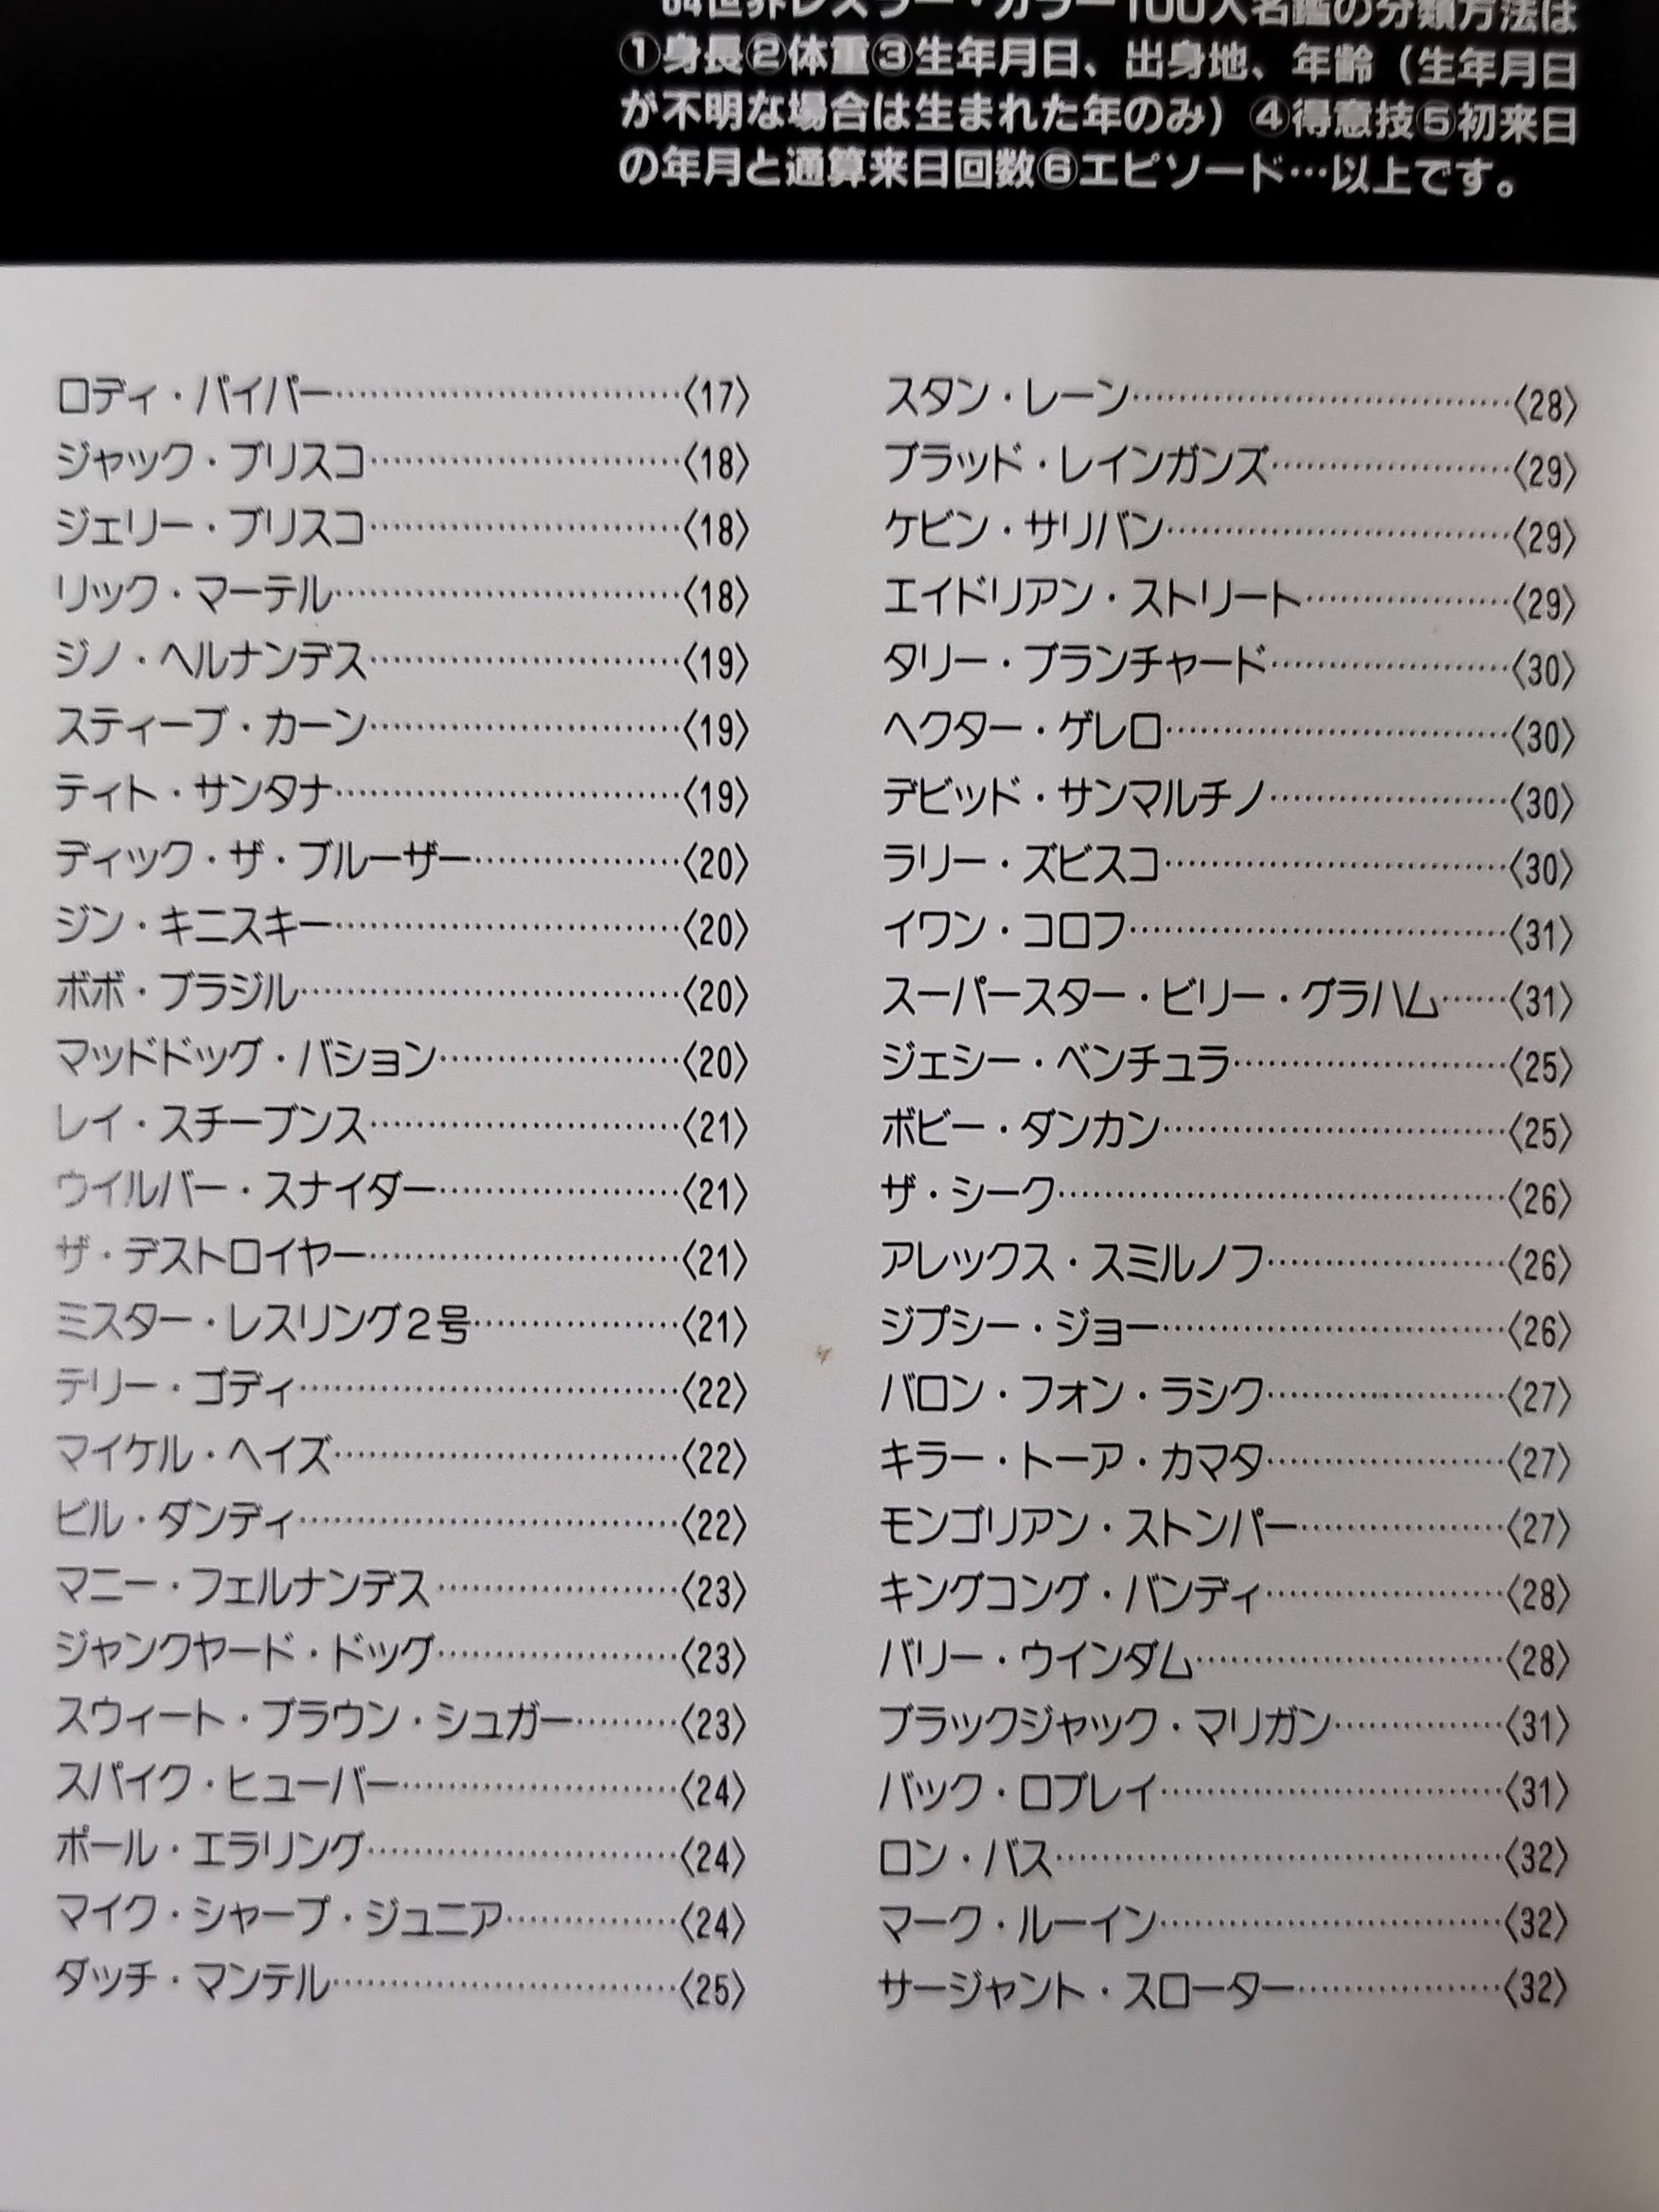 64世界レスラー・カラー100人名鑑の分類方法は
①身長②体重③生年月日、出身地、年齢（生年月日
が不明な場合は生まれた年のみ）④得意技⑤初来日
の年月と通算来日回数⑥エピソード…以上です。
ロディ・パイパー……………………〈17〉
ジャック・ブリスコ……………………〈18〉
ジェリー・ブリスコ……………………〈18〉
リック・マーテル……………………〈18〉
ジノ・ヘルナンデス……………………〈19〉
スティーブ・カーン……………………〈19〉
ティト・サンタナ……………………〈19〉
ディック・ザ・ブルーザー……………〈20〉
ジン・キニスキー……………………〈20〉
ボボ・ブラジル……………………〈20〉
マッドドッグ・バション………………〈20〉
レイ・スチーブンス……………………〈21〉
ウイルバー・スナイダー………………〈21〉
ザ・デストロイヤー……………………〈21〉
ミスター・レスリング2号……………〈21〉
テリー・ゴディ……………………〈22〉
マイケル・ヘイズ……………………〈22〉
ビル・ダンディ……………………〈22〉
マニー・フェルナンデス………………〈23〉
ジャンクヤード・ドッグ………………〈23〉
スウィート・ブラウン・シュガー………〈23〉
スパイク・ヒューバー…………………〈24〉
ポール・エラリング……………………〈24〉
マイク・シャープ・ジュニア…………〈24〉
ダッチ・マンテル……………………〈25〉
スタン・レーン……………………〈28〉
ブラッド・レインガンズ………………〈29〉
ケビン・サリバン……………………〈29〉
エイドリアン・ストリート……………〈29〉
タリー・ブランチャード………………〈30〉
ヘクター・ゲレロ……………………〈30〉
デビッド・サンマルチノ………………〈30〉
ラリー・ズビスコ……………………〈30〉
イワン・コロフ……………………〈31〉
スーパースター・ビリー・グラハム……〈31〉
ジェシー・ベンチュラ…………………〈25〉
ボビー・ダンカン……………………〈25〉
ザ・シーク……………………〈26〉
アレックス・スミルノフ………………〈26〉
ジプシー・ジョー……………………〈26〉
バロン・フォン・ラシク………………〈27〉
キラー・トーア・カマタ………………〈27〉
モンゴリアン・ストンパー……………〈27〉
キングコング・バンディ………………〈28〉
バリー・ウインダム……………………〈28〉
ブラックジャック・マリガン…………〈31〉
バック・ロブレイ……………………〈31〉
ロン・バス……………………〈32〉
マーク・ルーイン……………………〈32〉
サージャント・スローター……………〈32〉